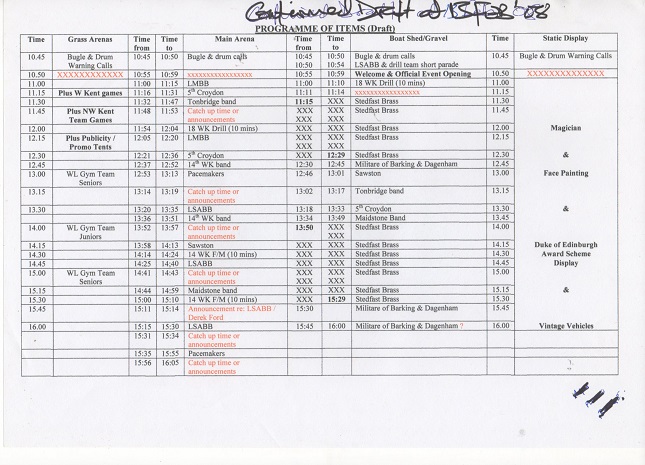 Confirmed Draft at 15/08/08
PROGRAMME OF ITEMS (Draft)
Time Grass Arenas Time from Time to Main Arena Time from Time to Boat Shed/Gravel Time Static Display
10.45 Bugle & Drum Warning Calls 10:45 10:50 Bugle & drum calls 10:45 10:50 Bugle & drum calls 10.45 Bugle & Drum Warning Calls
10:50 10:54 LSABB & drill team short parade
10.50 XXXXXXXXXXXXX 10:55 10:59 xxxxxxxxxxxxxxxxx 10:55 10:59 Welcome & Official Event Opening 10.50 XXXXXXXXXXXXXX
11.00 11:00 11:15 LMBB 11:00 11:10 18 WK Drill (10 mins) 11.00
11.15 Plus W Kent games 11:16 11:31 5th Croydon 11:11 11:14 xxxxxxxxxxxxxxxxx 11.15
11.30 11:32 11:47 Tonbridge band 11:15 XXX Stedfast Brass 11.30
11.45 Plus NW Kent Team Games 11:48 11:53 Catch up time or announcements XXX XXX XXX XXX Stedfast Brass 11.45
12.00 11:54 12:04 18 WK Drill (10 mins) XXX XXX Stedfast Brass 12.00 Magician
12.15 Plus Publicity / Promo Tents 12:05 12:20 LMBB XXX XXX XXX XXX Stedfast Brass 12.15
12.30 12:21 12:36 5th Croydon XXX 12:29 Stedfast Brass 12.30 &
12.45 12:37 12:52 14th WK band 12:30 12:45 Militare of Barking & Dagenham 12.45
13.00 WL Gym Team Seniors 12:53 13:13 Pacemakers 12:46 13:01 Sawston 13.00 Face Painting
13.15 13:14 13:19 Catch up time or announcements 13:02 13:17 Tonbridge band 13.15
13.30 13:20 13:35 LSABB 13:18 13:33 5th Croydon 13.30 &
13:36 13:51 14th WK band 13:34 13:49 Maidstone Band 13.45
14.00 WL Gym Team Juniors 13:52 13:57 Catch up time or announcements 13:50 XXX XXX Stedfast Brass 14.00
14.15 13:58 14:13 Sawston XXX XXX Stedfast Brass 14.15 Duke of Edinburgh
14.30 14:14 14:24 14 WK F/M (10 mins) XXX XXX Stedfast Brass 14.30 Award Scheme
14.45 14:25 14:40 LSABB XXX XXX Stedfast Brass 14.45 Display
15.00 WL Gym Team Seniors 14:41 14:43 Catch up time or announcements XXX XXX XXX XXX Stedfast Brass 15.00
15.15 14:44 14:59 Maidstone band XXX XXX Stedfast Brass 15.15 &
15.30 15:00 15:10 14 WK F/M (10 mins) XXX 15:29 Stedfast Brass 15.30
15.45 15:11 15:14 Announcement re: LSABB / Derek Ford 15:30 Militare of Barking & Dagenham 15.45
16.00 15:15 15:30 LSABB 15:45 16:00 Militare of Barking & Dagenham ? 16.00 Vintage Vehicles
15:31 15:34 Catch up time or announcements
15:35 15:55 Pacemakers
15:56 16:05 Catch up time or announcements